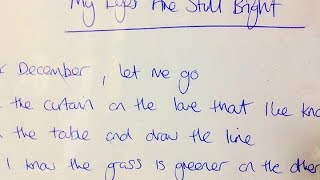 My Eyes Are Still Bright
December, let me go
the curtain on the love that I've kno
the table and draw the line
I know the grass is greener on the other